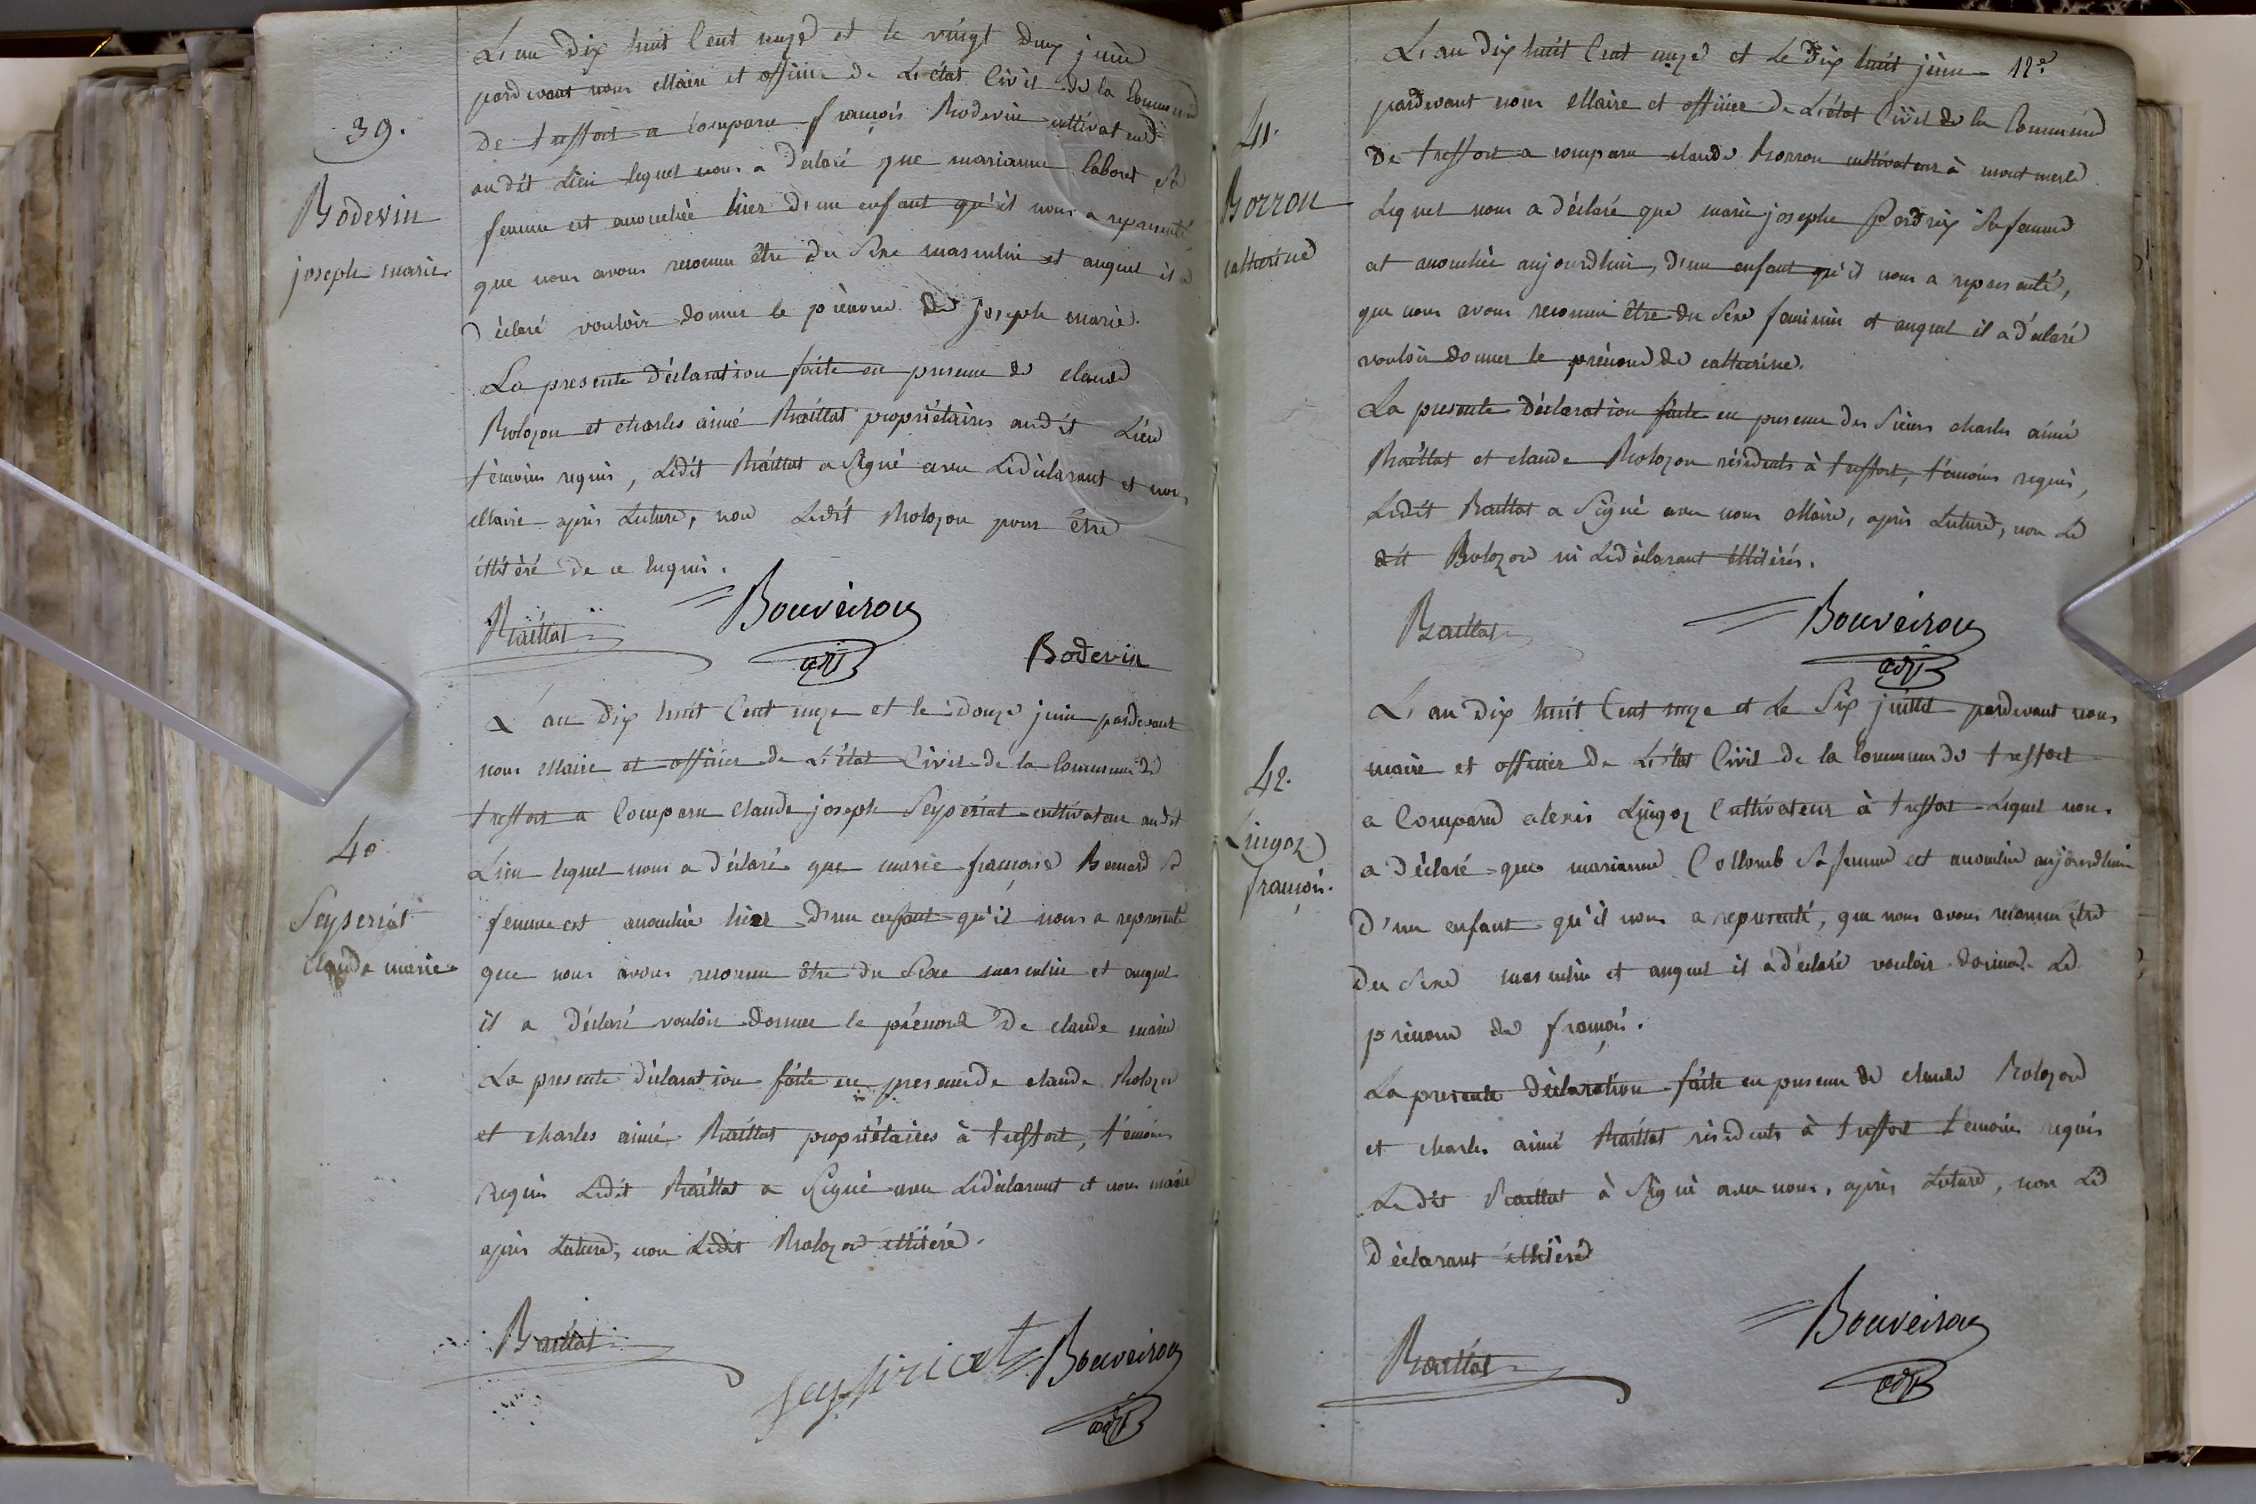 39.
Bodevin
joseph marie
L'an dix huit Cent onze et le vingt deux juin
pardevant nous Maire et officier de L'état Civil de la Commune
de treffort a comparu françois Bodevin cultivateur
au dit Lieu lequel nous a déclaré que marianne Laboret sa
femme est accouchée hier d'un enfant qu'il nous a representé
que nous avons reconnu être du Sexe masculin et auquel il a
déclaré vouloir donner le prénom de joseph marie.
La presente déclaration faite en presence de claude
Bolozon et charles aimé Raillat propriétaires au dit Lieu
témoins requis, Ledit Raillat a Signé avec Le déclarant et nous
Maire après Lecture, non Ledit Bolozon pour être
illitéré de ce Enquis.
Raillat
Bouveirou
adj
Bodevin
40
Seyseriat
claude marie
L'an dix huit Cent onze et le douze juin pardevant
nous Maire et officier de L'état Civil de la Commune de
treffort a Comparu Claude joseph Seyseriat cultivateur au dit
Lieu lequel nous a déclaré que marie françoise Bernard sa
femme est accouchée hier d'un enfant qu'il nous a representé
que nous avons reconnu être du Sexe masculin et auquel
il a déclaré vouloir donner le prénom de claude marie
La presente déclaration faite en presence de claude Bolozon
et charles aimé Raillat propriétaires à treffort, témoins
requis Ledit Raillat a Signé avec Le déclarant et nous maire
après Lecture, non Ledit Bolozon illitéré.
Raillat
Bouveirou
adj
41.
Borron
catherine
L'an dix huit Cent onze et Le dix huit juin 12e
pardevant nous Maire et officier de L'état Civil de la Commune
de treffort a comparu claude Borron cultivateur à montmerle
Lequel nous a déclaré que marie josephe Perdrix Sa femme
est accouchée aujourdhui, d'un enfant qu'il nous a representé,
que nous avons reconnu être du Sexe feminin et auquel il a déclaré
vouloir donner le prénom de catherine.
La presente déclaration faite en presence des Sieurs charles aimé
Raillat et claude Bolozon résidents à treffort, témoins requis,
Ledit Raillat a Signé avec nous Maire, après Lecture, non Le
dit Bolozon ni Le déclarant illitérés.
Raillat
Bouveirou
adj
42.
Lingoz
françois.
L'an dix huit Cent onze et Le Six juillet pardevant nous
maire et officier de L'état Civil de la Commune de treffort
a Comparu alexis Lingoz Cultivateur à treffort Lequel nous
a déclaré que marianne Collomb Sa femme est accouchée aujourdhui
d'un enfant qu'il nous a representé, que nous avons reconnu être
du Sexe masculin et auquel il a déclaré vouloir donner Le
prénom de françois.
La presente déclaration faite en presence de claude Bolozon
et charles aimé Raillat résidents à treffort témoins requis
Ledit Raillat à Signé avec nous, après Lecture, non Le
déclarant illitéré
Raillat
Bouveirou
adj